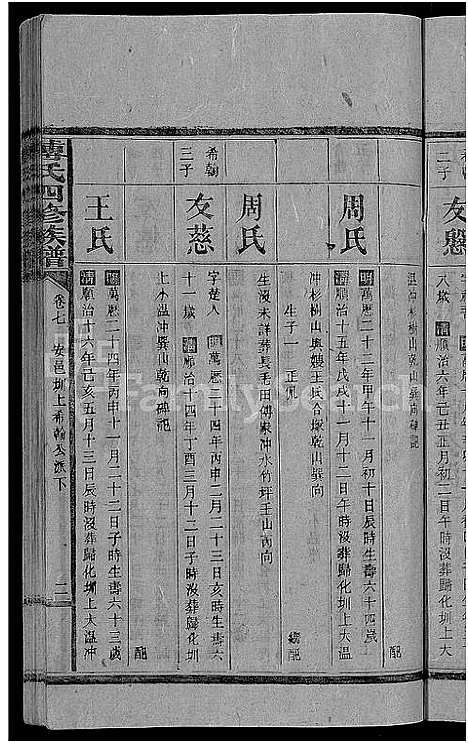 希翰
二子
友慇
六歲 清順治六年己丑正月初二日午時沒葬歸化圳上大
溫冲杉樹山乾山巽向碑記
配
周氏
明萬厯二十二年甲午十一月初十日辰時生壽六十四歲
清順治十五年戊戌十一月十二日午時沒葬歸化圳上大溫
冲杉樹山與嫂王氏合塚乾山巽向
生子一 正
繼配
周氏
生沒未詳葬長毛田傅家冲水竹坪壬山內向
希翰
三子
友慈
字楚人 明萬厯二十四年丙申二月二十三日亥時生壽六
十一歲 清順治十四年丁酉三月十二日子時沒葬歸化圳
上大溫冲巽山乾向碑記
配
王氏
明萬厯二十四年丙申十一月二十二日子時生壽六十三歲
清順治十六年己亥五月十三日辰時沒葬歸化圳上大溫冲
氏四修族譜
卷七
安邑圳上希翰公派下
二
FamilySearch